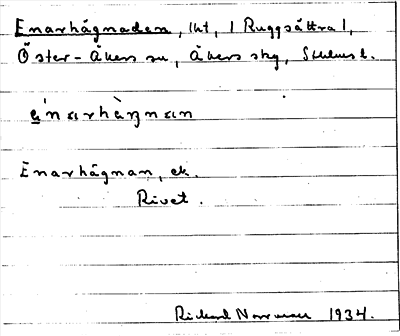 Enarhágnaden, lht, (Ruggsättra),
Öster-Åkers sn, Åkers skg, Sthlms l.
Enarhágnan, ek.
Rivet.
Richard Norrman 1934.